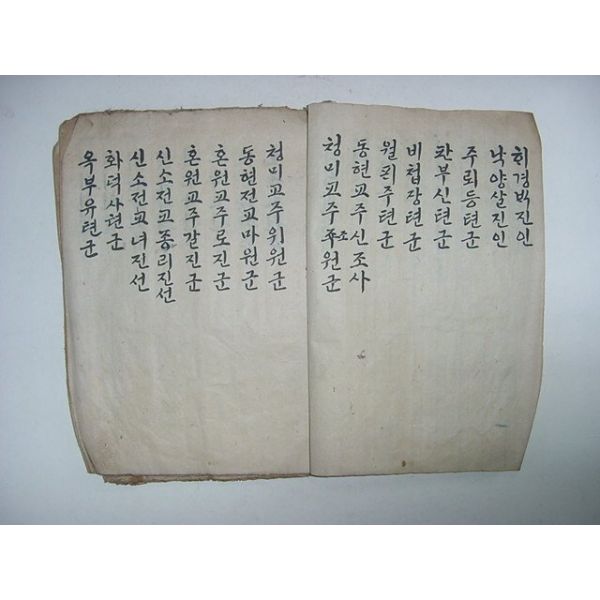 히경빅진인
낙양살진인
주뢰등텬군
판부신텬군
비첩장텬군
월픠주텬군
동현교주신조사
청미교주조원군
청미교주위원군
동현전교마원군
혼원교주로진군
혼원교주갈진군
신소전교종리진선
신소전교녀진선
화덕사텬군
옥부유텬군